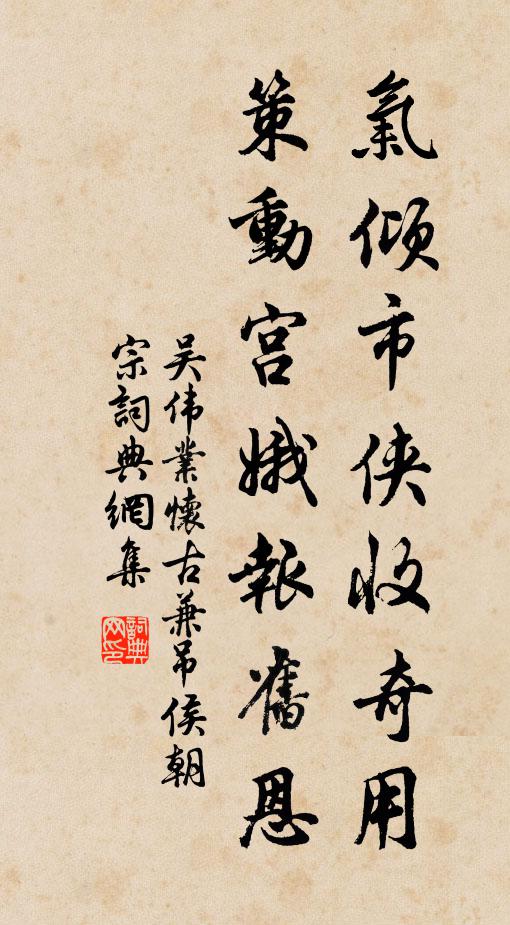 氣傾市俠收奇用
策動宮娥報舊恩
吴伟業懷古兼吊侯朝
宗詞典網集
詞典網印